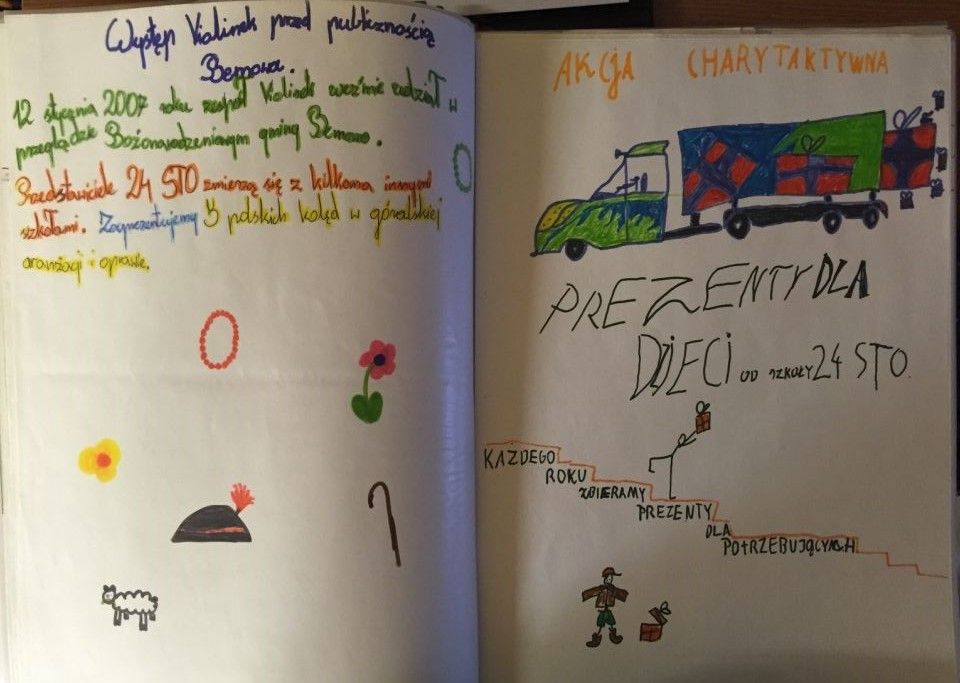 Występ Violinek przed publicznością
Bemowa
12 stycznia 2007 roku zespół Violinek weźmie udział w
przeglądzie Bożonarodzeniowym gminy Bemowo.
Przedstawiciele 24 STO zmierzą się z kilkoma innymi
szkołami. Zaprezentujemy 5 polskich kolęd w góralskiej
aranżacji i oprawie.
AKCJA CHARYTAKTYWNA
PREZENTY DLA
DZIECI OD SZKOŁY 24 STO.
KAŻDEGO
ROKU
ZBIERAMY
PREZENTY
DLA
POTRZEBUJĄCYCH